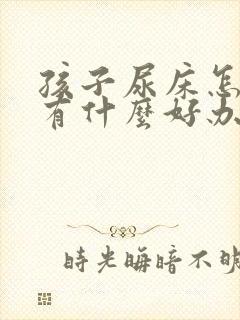 孩子尿床怎
有什麼好办
時光晦暗不明